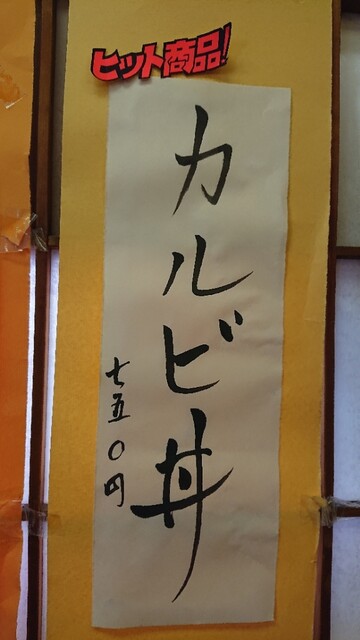 ヒット商品!
カルビ丼
七五〇円